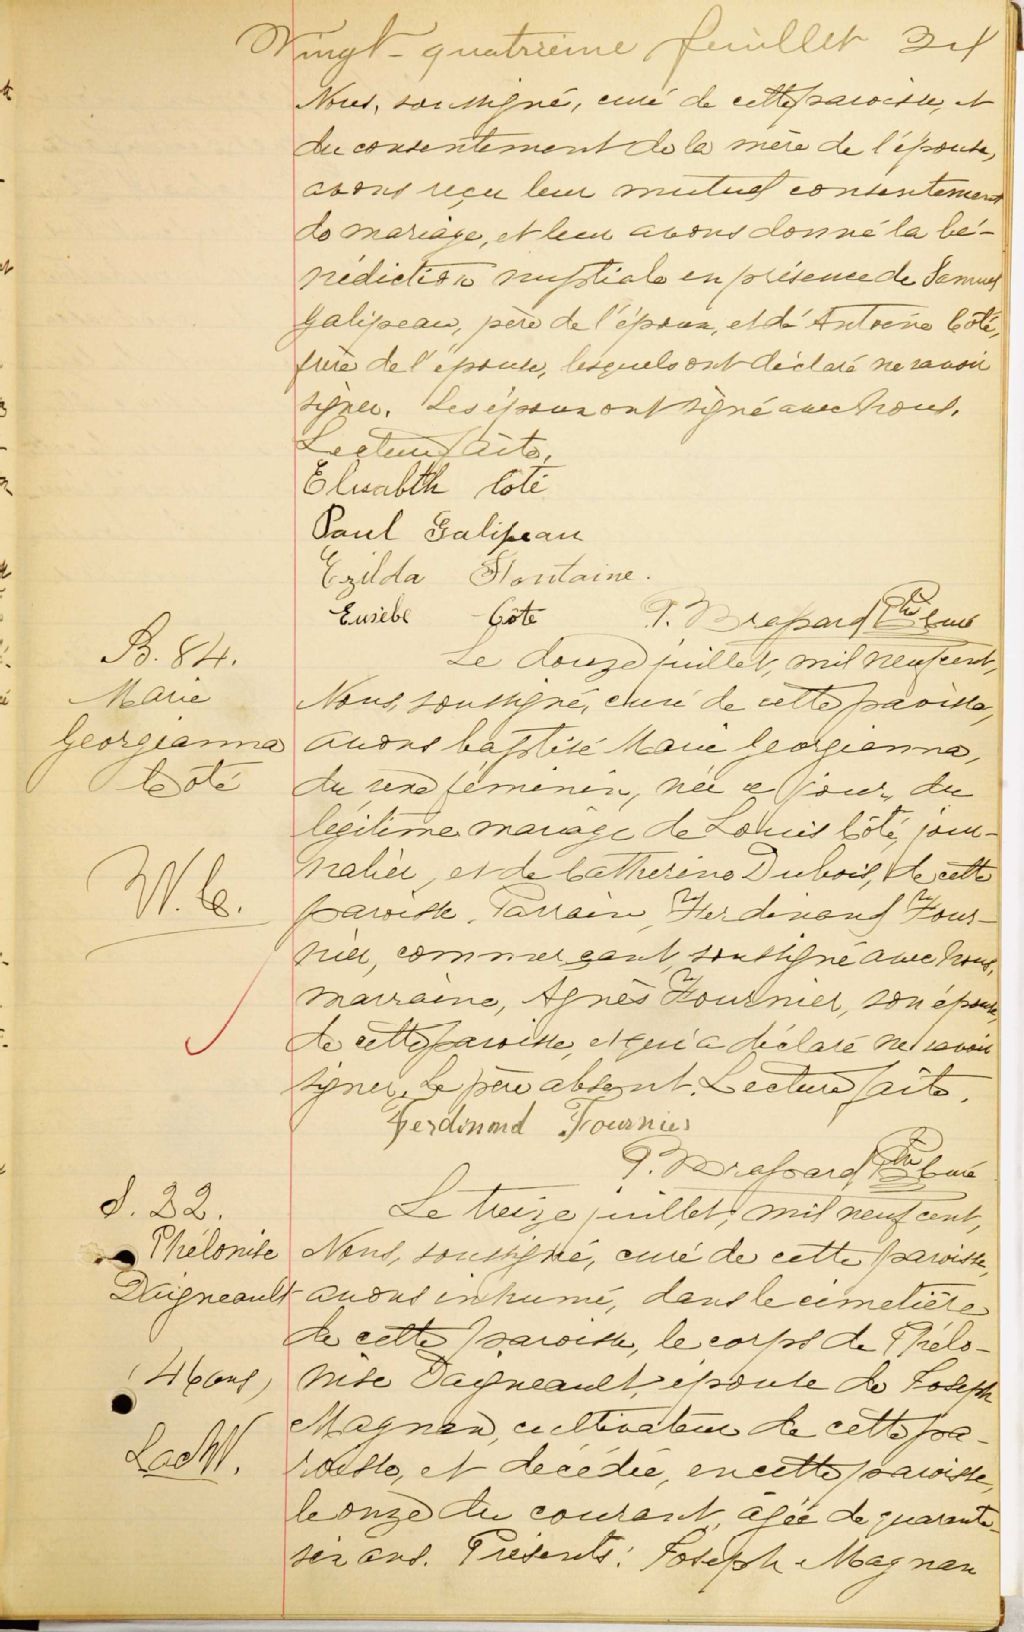 Vingt-quatrième feuillet 24
Nous, soussigné, curé de cette paroisse, et
du consentement de la mère de l'épouse,
avons reçu leur mutuel consentement
de mariage, et leur avons donné la bé-
nédiction nuptiale en présence de Samuel
Galipeau, père de l'époux, et de Antoine Côté,
frère de l'épouse, lesquels ont déclaré ne savoir
signer. Les époux ont signé avec nous.
Lecture faite.
Elisabth Coté
Paul Galipeau
Ezilda Fontaine.
Eusèbe Côte P. Brassard Ptre Curé
B. 84.
Marie
Georgianna
Côté
W. C.
Le douze juillet, mil neuf cent,
Nous, soussigné, curé de cette paroisse,
avons baptisé Marie Georgianna,
du sexe féminin, née ce jour, du
légitime mariage de Louis Côté, jour-
nalier, et de Catherine Dubois, de cette
paroisse. Parrain, Ferdinand Four-
nier, commerçant, soussigné avec nous,
marraine, Agnès Fournier, son épouse,
de cette paroisse, et qui a déclaré ne savoir
signer. Le père absent. Lecture faite.
Ferdinand Fournier
P. Brassard Ptre Curé
S. 22.
Phélonise
Daigneault
46 ans,
Lac W.
Le treize juillet, mil neuf cent,
Nous, soussigné, curé de cette paroisse,
avons inhumé, dans le cimetière
de cette paroisse, le corps de Phélo-
nise Daigneault, épouse de Joseph
Magnan, cultivateur de cette pa-
roisse, et décédée, en cette paroisse,
le onze du courant, âgée de quarante-
six ans. Présents: Joseph Magnan